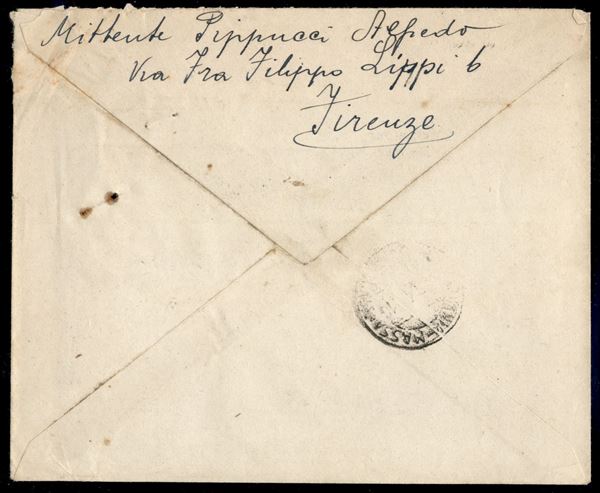 Mittente Pippucci Alfredo
Via Fra Filippo Lippi 6
Firenze